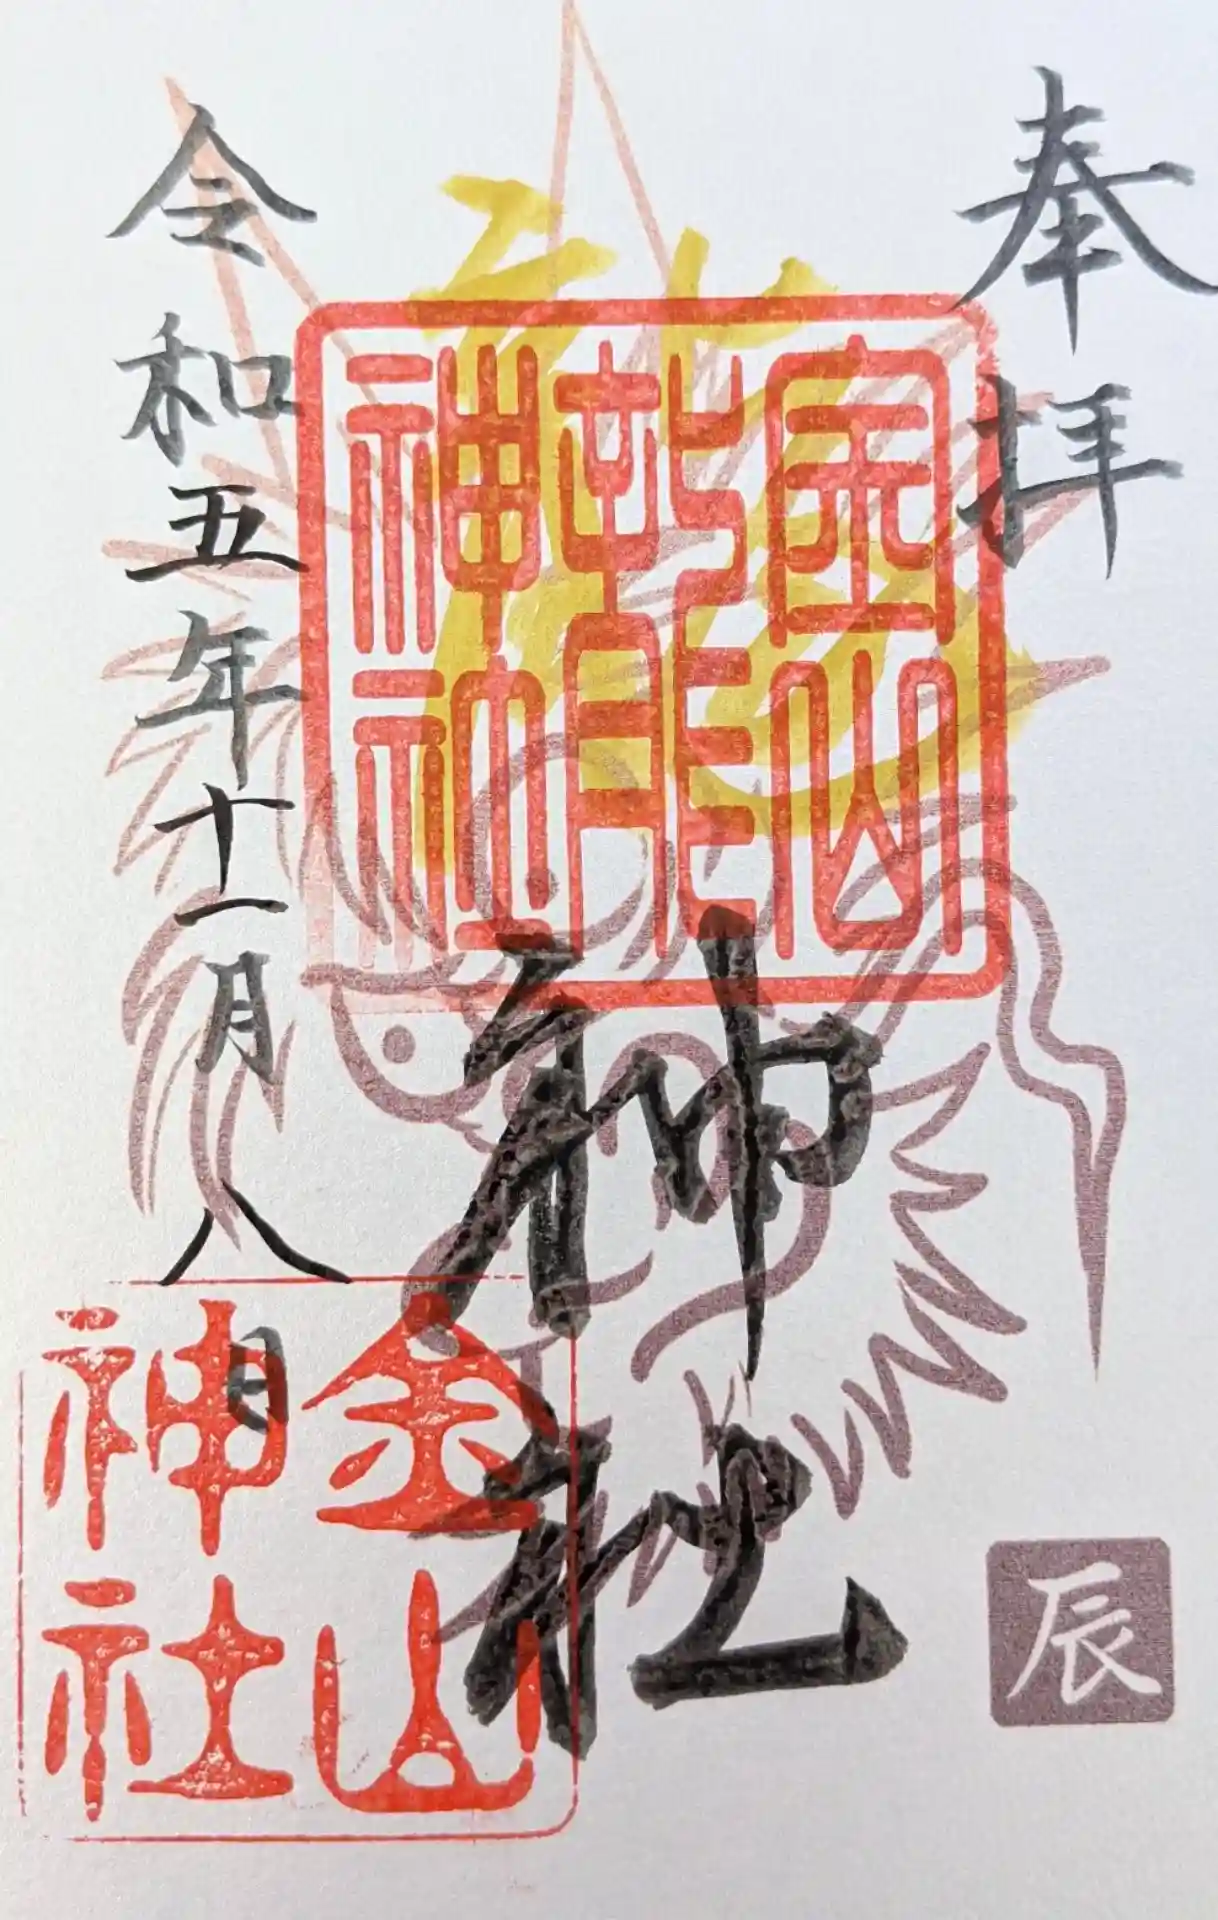 奉拝
金山
龍
神社
龍神社
令和五年十一月八日
金山
神社
辰